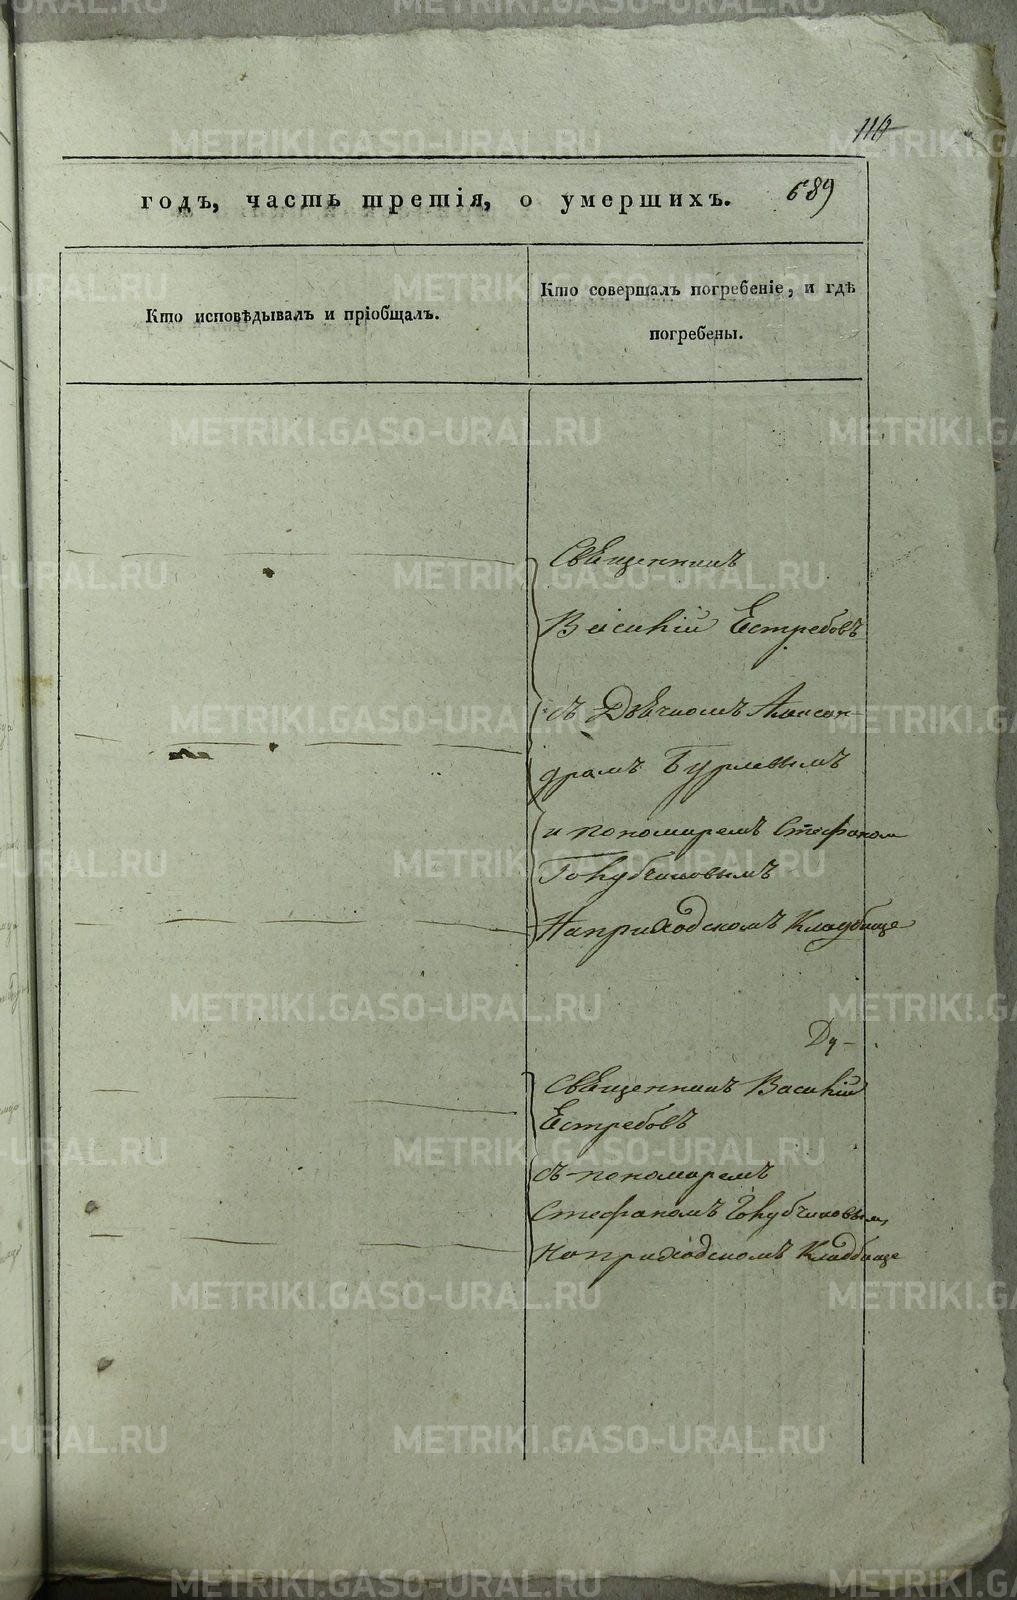 110
годъ, часть третія, о умершихъ. 689
Кто исповѣдывалъ и пріобщалъ.
Кто совершалъ погребеніе, и гдѣ
погребены.
Священникъ
Василій Естребовъ
съ Дьячкомъ Алексан-
дромъ Бурлевымъ
и пономаремъ Стефаном
Голубчиковымъ
На приходскомъ Кладбище
Священникъ Василій
Естребовъ
съ пономаремъ
Стефаномъ Голубчиковым
На приходскомъ Кладбище
METRIKI.GASO-URAL.RU